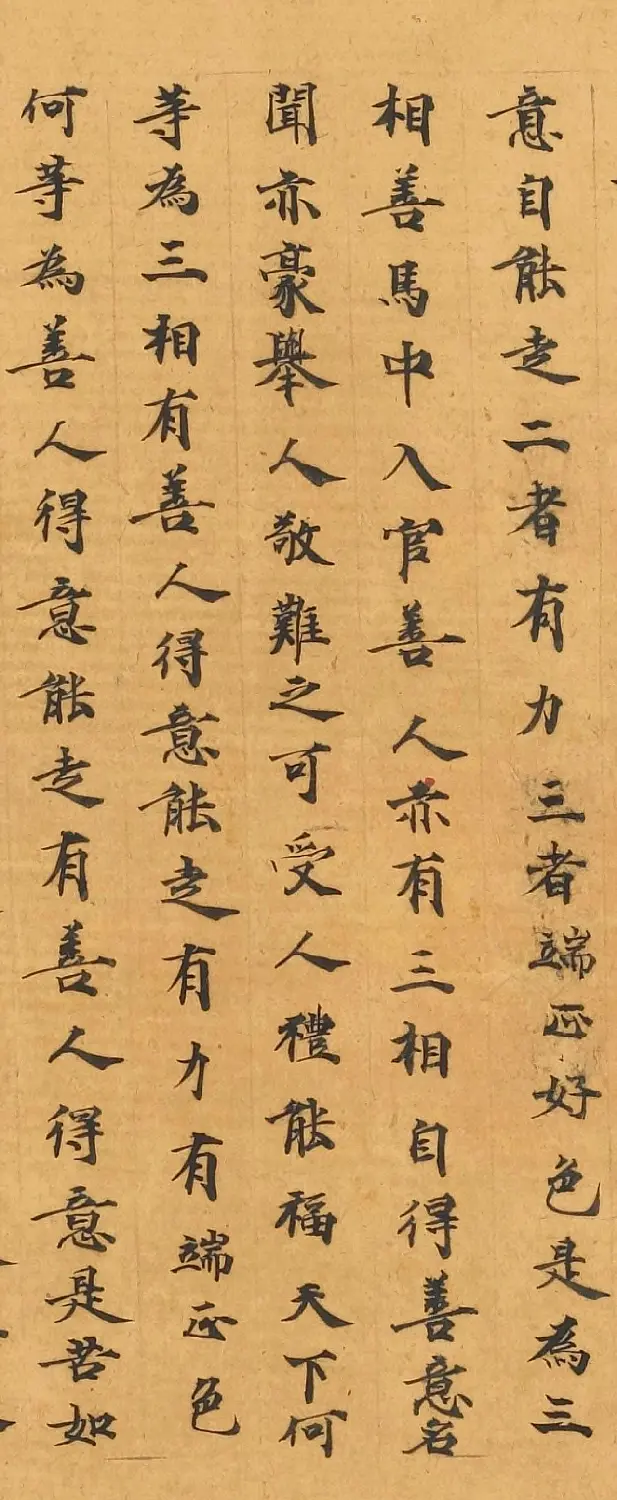 意自能走二者有力三者端正好色是為三
相善馬中入官善人亦有三相自得善意名
聞亦豪舉人敬難之可受人禮能福天下何
等為三相有善人得意能走有力有端正色
何等為善人得意能走有善人得意是苦如